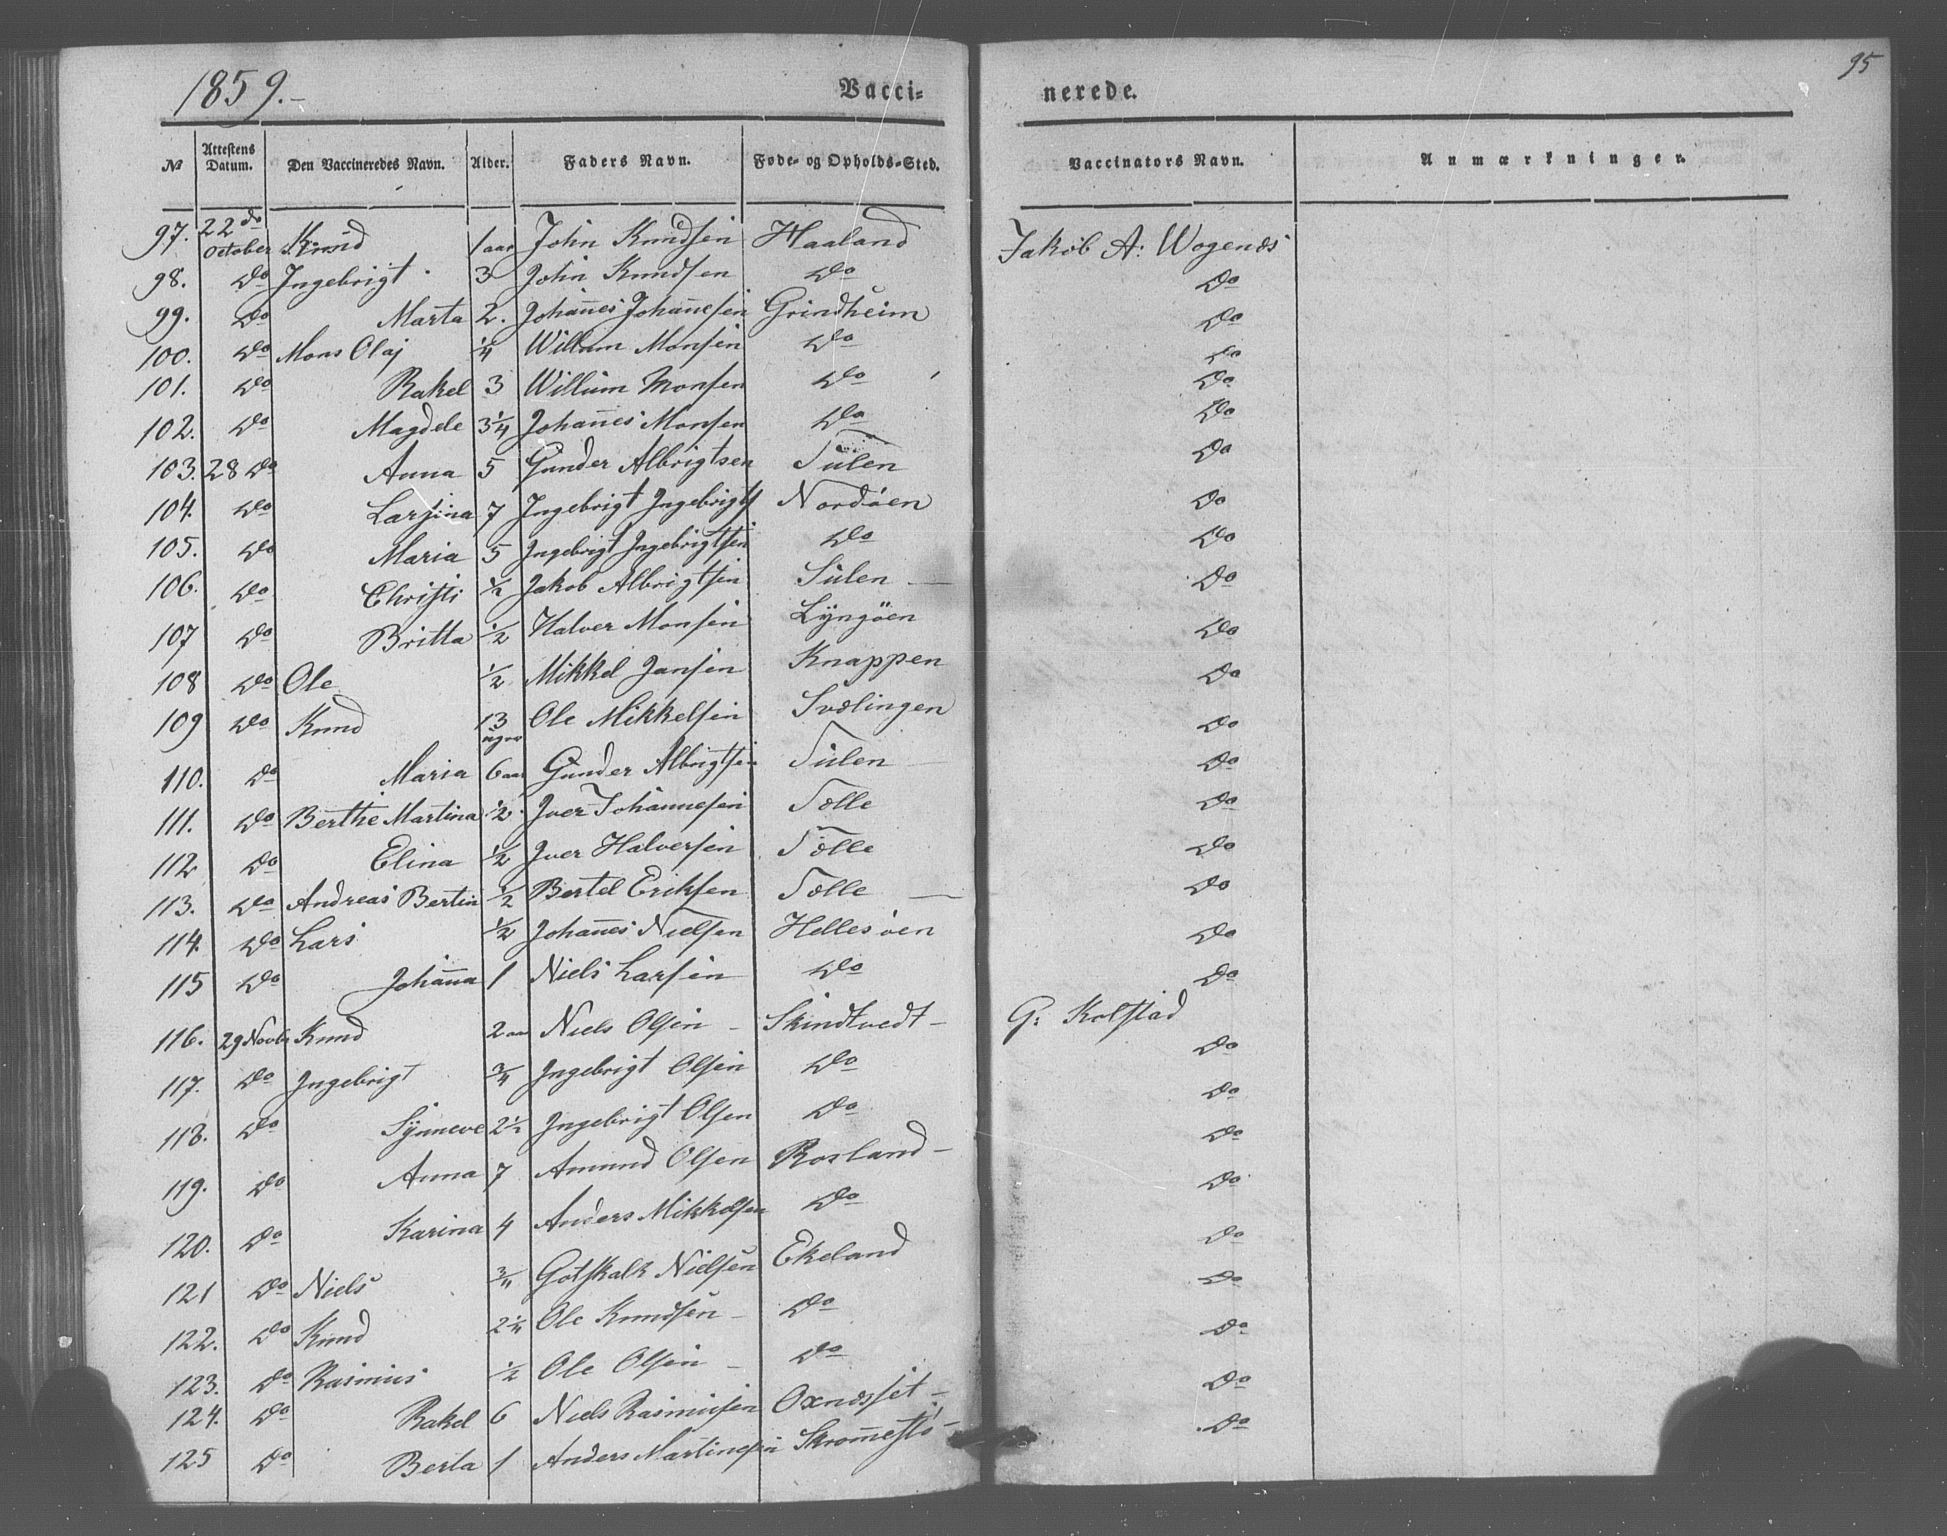 1859.- Vacci= nerede. 95
№ Attestens Datum. Den Vaccineredes Navn. Alder. Faders Navn. Føde- og Opholds-Sted. Vaccinators Navn. Anmærkninger.
97. 22de October Knud 1 aar John Knudsen Haaland Jakob A: Wogenæs
98. Do Ingebrigt 3 John Knudsen Do Do
99. Do Marta 2. Johan̄es Johan̄esen Grindheim Do
100. Do Mons Olaj 1/4 Willum Monsen Do Do
101. Do Rakel 3 Willum Monsen Do Do
102. Do Magdele 3 1/4 Johan̄es Monsen Do Do
103. 28 Do Anna 5 Gunder Albrigtsen Tulen Do
104. Do Larsina 7 Ingebrigt Ingebrigts Nordøen Do
105. Do Maria 5 Ingebrigt Ingebrigtsen Do Do
106. Do Christi 1/2 Jakob Albrigtsen Sulen Do
107 Do Britta 1/2 Halver Monsen Lyngøen Do
108 Do Ole 1/2 Mikkel Jansen Knappen Do
109 Do Knud 13 uger Ole Mikkelsen Svælingen Do
110. Do Maria 6 aar Gunder Albrigtsen Tulen Do
111. Do Berthe Martina 1/2. Iver Johannesen Tolle Do
112 Do Elina 1/2 Iver Halversen Tolle Do
113. Do Andreas Bertin 1/2 Bertel Eriksen Tolle Do
114. Do Lars 1/2 Johan̄es Nielsen Hellesøen Do
115 Do Johan̄a 1 Niels Larsen Do Do
116. 29 Novbr Knud 2 aar Niels Olsen - Skindtvedt - G: Kolstad
117. Do Ingebrigt 3/4 Ingebrigt Olsen Do Do
118. Do Synneve 2 1/2 Ingebrigt Olsen Do Do
119. Do Anna 7 Amund Olsen Rosland - Do
120. Do Karina 4 Anders Mikkelsen Do Do
121 Do Niels 3/4 Gotskalk Nielsen Ekeland Do
122. Do Knud 2 1/4 Ole Knudsen - Do Do
123. Do Rasmus 1/2 Ole Olsen - Do Do
124. Do Rakel 6 Niels Rasmusen Oxnæsset - Do
125 Do Berta 1 Anders Martinesen Skrom̄estø - Do